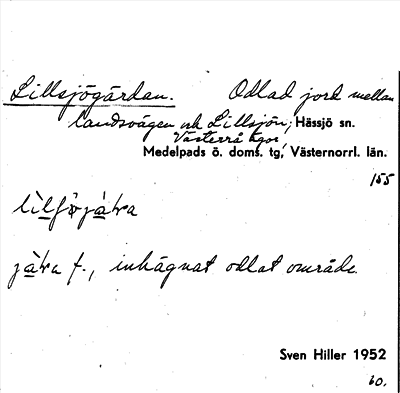 Lillsjögärdan. Odlad jord mellan
landsvägen och Lillsjön; Hässjö sn.
Västerrå ägor
Medelpads ö. doms. tg, Västernorrl. län.
155
f., inhägnat odlat område.
Sven Hiller 1952
60.